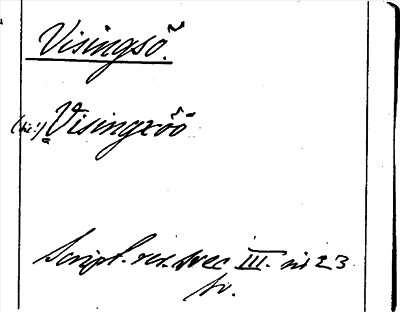 Visingsö.
(sic!) Visingxöö
Script. rer. svec III. nr 23